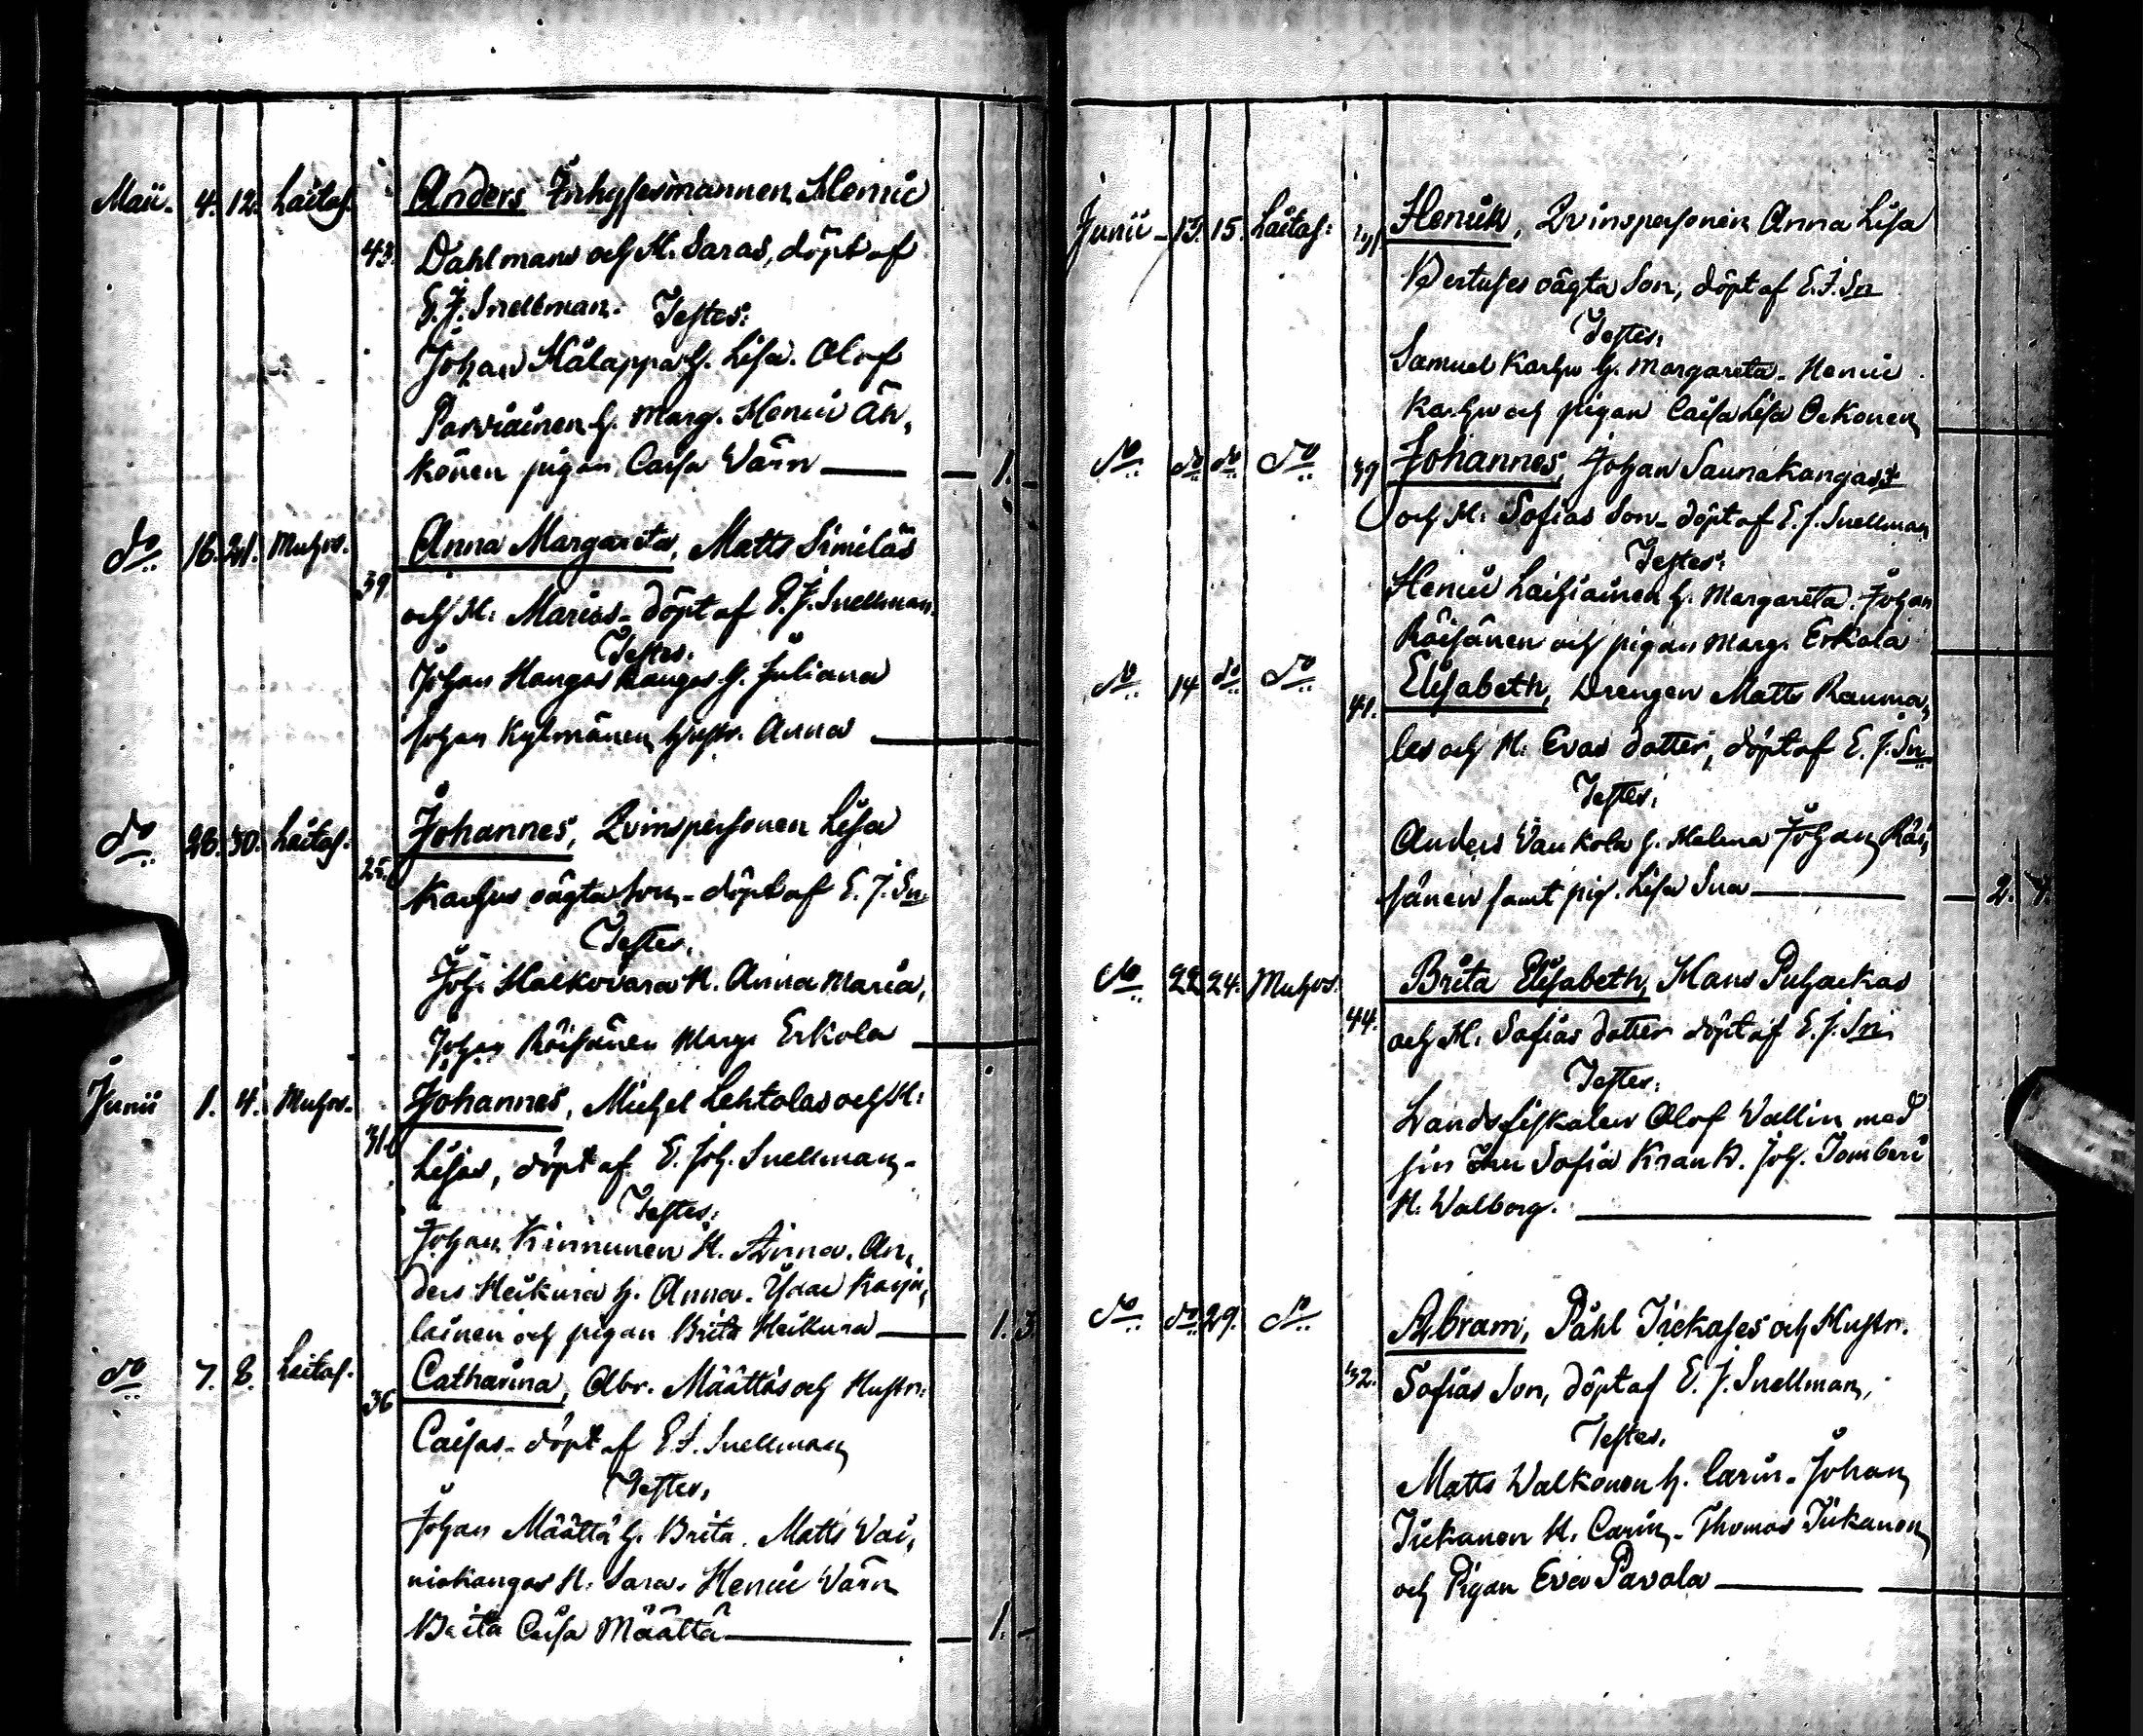 Maii. 4. 12. Laitas. Anders Inhysesmannen Henric
43. Dahlmans och H. Saras, döpt af
E. J. Snellman. Testes:
Johan Hålappa h. Lisa. Olof
Parviainen h. Marg. Henric Än,
könen pigan Caisa Wärn — 1.
do 16. 21. Muhos. Anna Margareta, Matts Similäs
39 och H. Marias döpt af E. J. Snellman.
Testes.
Johan Hangas Kangas h. Juliana
Johan Kylmänen hustr. Anna
do 28. 30. Laitas. Johannes, Qvinspersonen Lisa
25. Karhus oägta son döpt af E. J. Sn
Testes.
Joh. Halkovara H. Anna Maria,
Johan Räisänen Marg. Erkola
Junii 1. 4. Muhos. Johannes, Michel Lehtolas och H.
31. Lisas, döpt af E. Joh. Snellman
Testes.
Johan Kinnunen H. Anna. An,
ders Heikura h. Anna. Isaac Karja,
lainen och pigan Brita Heikura — 1. 3
do 7. 8. Laitas. Catharina, Abr. Määttäs och Hustr.
36 Caisas. döpt af E. J. Snellman
Testes,
Johan Määttä h. Brita. Matts Vai,
niokangas H. Sara. Henric Wärn
Brita Caisa Määttä — 1.
Junii 13. 15. Laitas. Henrik, Qvinspersonen Anna Lisa
Pertuses oägta Son, döpt af E. J. Sn
Testes,
Samuel Karhu h. Margareta. Henric
Karhu och pigan Caisa Lisa Orkonen
do do do do 39 Johannes, Johan Saunakangas
och H. Sofias Son döpt af E. J. Snellman
Testes,
Henric Laihiainen h. Margareta. Johan
Räisänen och pigan Marg. Erkola
do 14 do do Elisabeth, Drengen Matts Rauma,
41. les och H. Evas dotter, döpt af E. J. Sn
Testes,
Anders Vankola h. Helena Johan Räi,
sänen samt pig. Lisa Sua — 2. 4.
do 22. 24. Muhos. Brita Elisabeth, Hans Puhackas
44. och H. Sofias dotter döpt af E. J. Sn
Testes.
Landsfiskalen Olof Wallin med
sin Fru Sofia Krank. Joh. Tomberi
H. Walborg.
do do 29. do Abram, Påhl Tickases och Hustr.
32. Sofias Son, döpt af E. J. Snellman,
Testes,
Matts Walkonen h. Carin. Johan
Tickanen H. Carin. Thomas Tickanen
och Pigan Eva Pavola